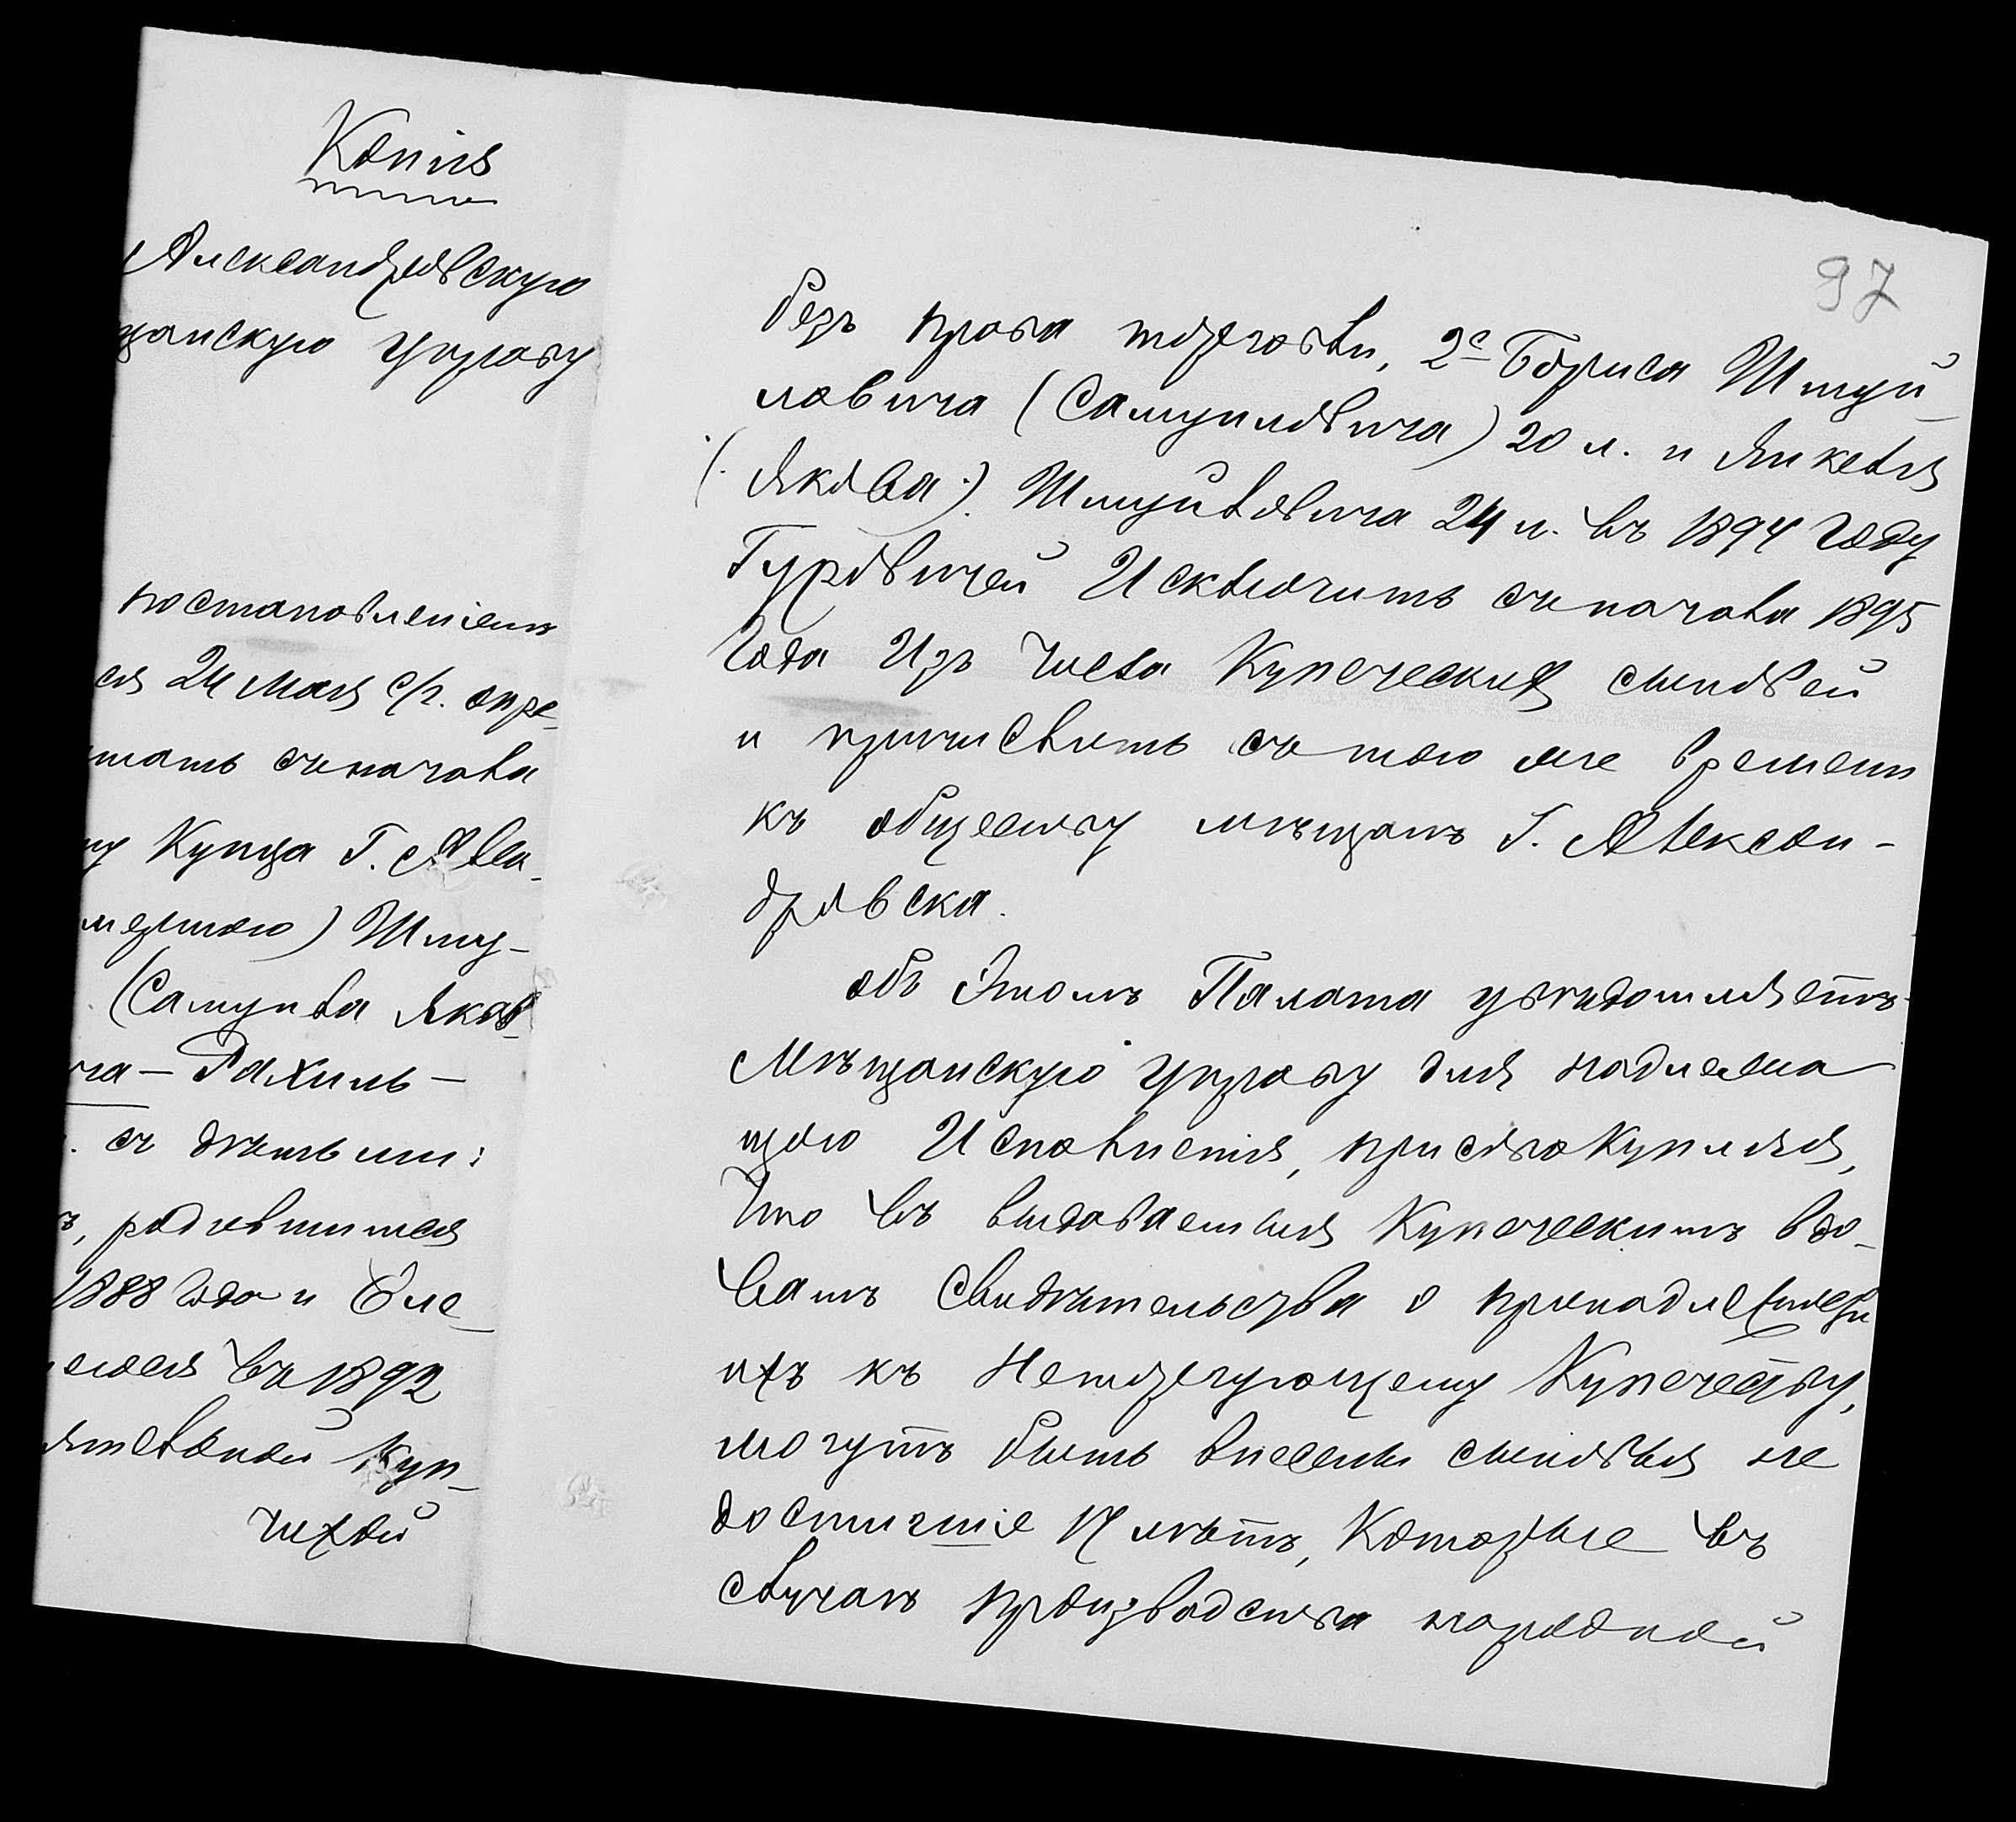 Копія
Александровскую
щанскую Управу
постановленіемъ
ся 24 Мая с/г. опре-
тать съ начала
Купца Г. Алек-
мершаго) Шму-
(Самуила Яков-
ча – Рахиль –
съ дѣтьми:
ъ, родившимся
1888 года и Еле-
шеюся въ 1892
Куп-
чихой
97
безъ права торговли, 2е Бориса Шмуй-
ловича (Самуиловича) 20 л. и Янкеля
(Якова) Шмуйловича 24 л. въ 1894 году
Гуровичей Исключить съ начала 1895
года Изъ числа Купеческихъ сыновей
и причислить съ того же времени
къ обществу мѣщанъ Г. Алексан-
дровска.
объ этомъ Палата увѣдомляетъ
Мѣщанскую Управу для надлежа
щаго Исполненія, присовокупляя,
что въ выдаваемыя Купеческимъ вдо-
вамъ свидѣтельства о принадлежности
ихъ къ Неторгующему Купечеству,
могутъ быть внесены сыновья не
достигшіе 17 лѣтъ, Которые въ
случаѣ производства народной